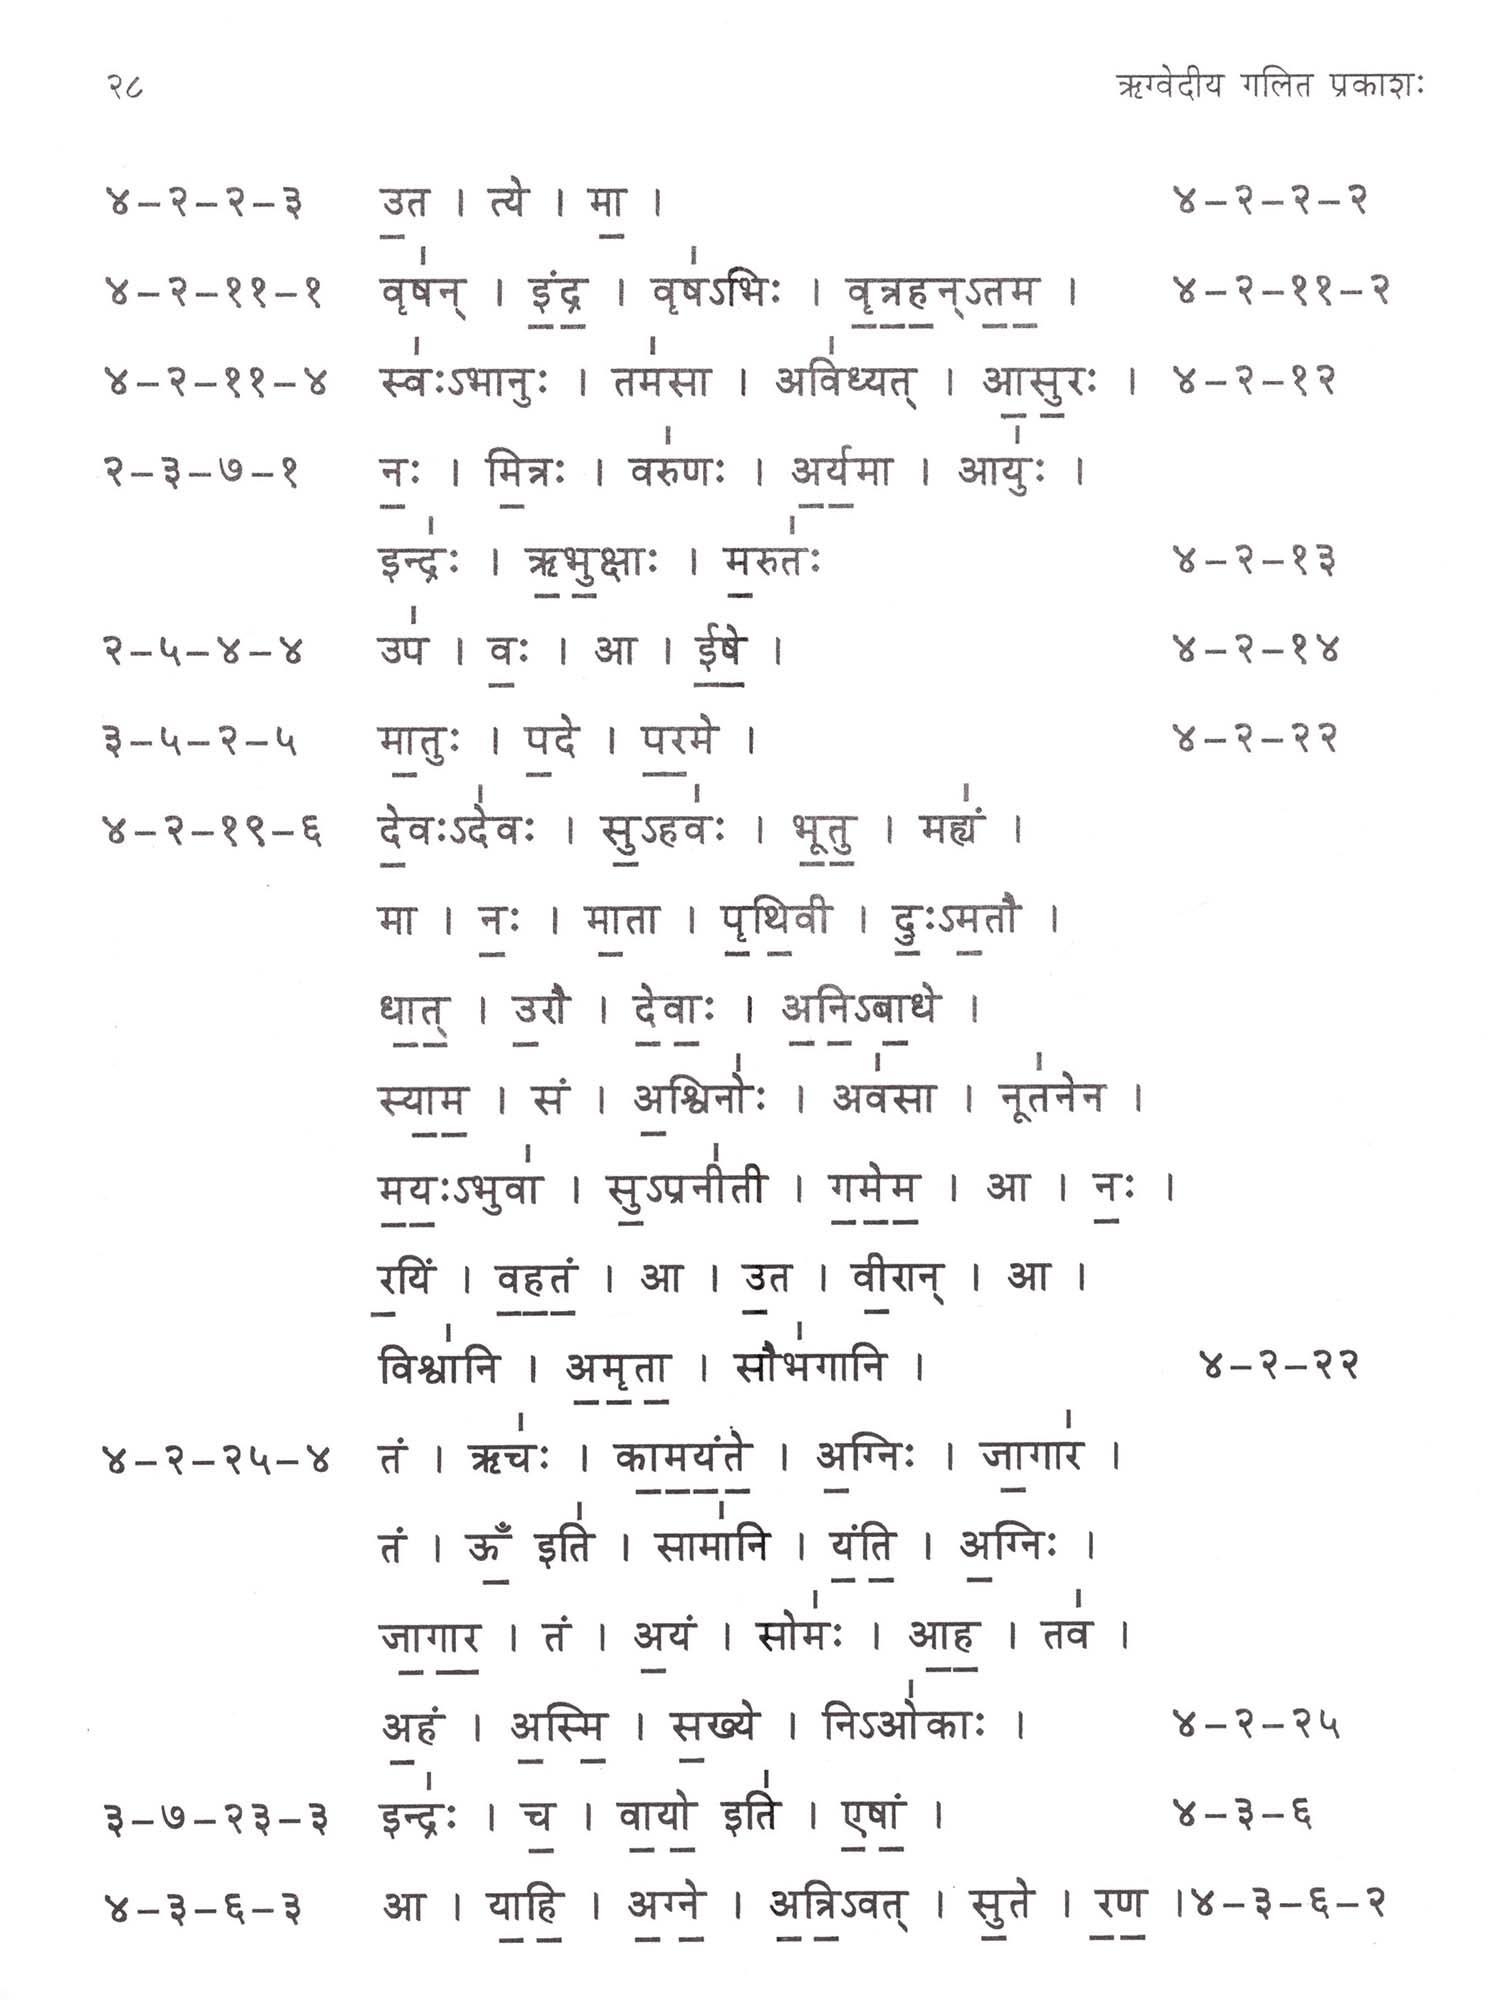 २८ ऋग्वेदीय गलित प्रकाशः
४–२–२–३ उ॒त । त्ये । मा॒ । ४–२–२–२
४–२–११–१ वृष॑न् । इं॒द्र॒ । वृष॑ऽभिः । वृ॒त्र॒ह॒न्ऽत॒म॒ । ४–२–११–२
४–२–११–४ स्वः॑ऽभानुः । तम॑सा । अवि॑ध्यत् । आ॒सु॒रः । ४–२–१२
२–३–७–१ नः॒ । मि॒त्रः । वरु॑णः । अ॒र्य॒मा । आयुः॑ ।
इन्द्रः॑ । ऋ॒भु॒क्षाः । म॒रुतः॑ ४–२–१३
२–५–४–४ उप॑ । वः॒ । आ । ई॒षे॒ । ४–२–१४
३–५–२–५ मा॒तुः । प॒दे । प॒र॒मे । ४–२–२२
४–२–१९–६ दे॒वःऽदे॑वः । सु॒ऽहवः॑ । भू॒तु॒ । मह्यं॑ ।
मा । नः॒ । मा॒ता । पृ॒थि॒वी । दुः॒ऽम॒तौ ।
धा॒त्॒ । उ॒रौ । दे॒वाः॒ । अ॒नि॒ऽबा॒धे ।
स्या॒म॒ । सं । अ॒श्विनोः॑ । अव॑सा । नूत॑नेन ।
म॒यः॒ऽभुवा॑ । सु॒ऽप्रनी॑ती । ग॒मे॒म॒ । आ । नः॒ ।
र॒यिं । व॒ह॒तं॒ । आ । उ॒त । वी॒रान् । आ ।
विश्वा॑नि । अ॒मृ॒ता॒ । सौभ॑गानि । ४–२–२२
४–२–२५–४ तं । ऋचः॑ । का॒म॒यं॒ते॒ । अ॒ग्निः । जा॒गार॑ ।
तं । ऊँ॒ इति॑ । सामा॑नि । यं॒ति॒ । अ॒ग्निः ।
जा॒गा॒र॒ । तं । अ॒यं । सोमः॑ । आ॒ह॒ । तव॑ ।
अ॒हं । अ॒स्मि॒ । स॒ख्ये । निऽओ॑काः । ४–२–२५
३–७–२३–३ इन्द्रः॑ । च॒ । वा॒यो॒ इति॑ । ए॒षां॒ । ४–३–६
४–३–६–३ आ । या॒हि॒ । अ॒ग्ने॒ । अ॒त्रि॒ऽवत् । सु॒ते । र॒ण॒ ।४–३–६–२